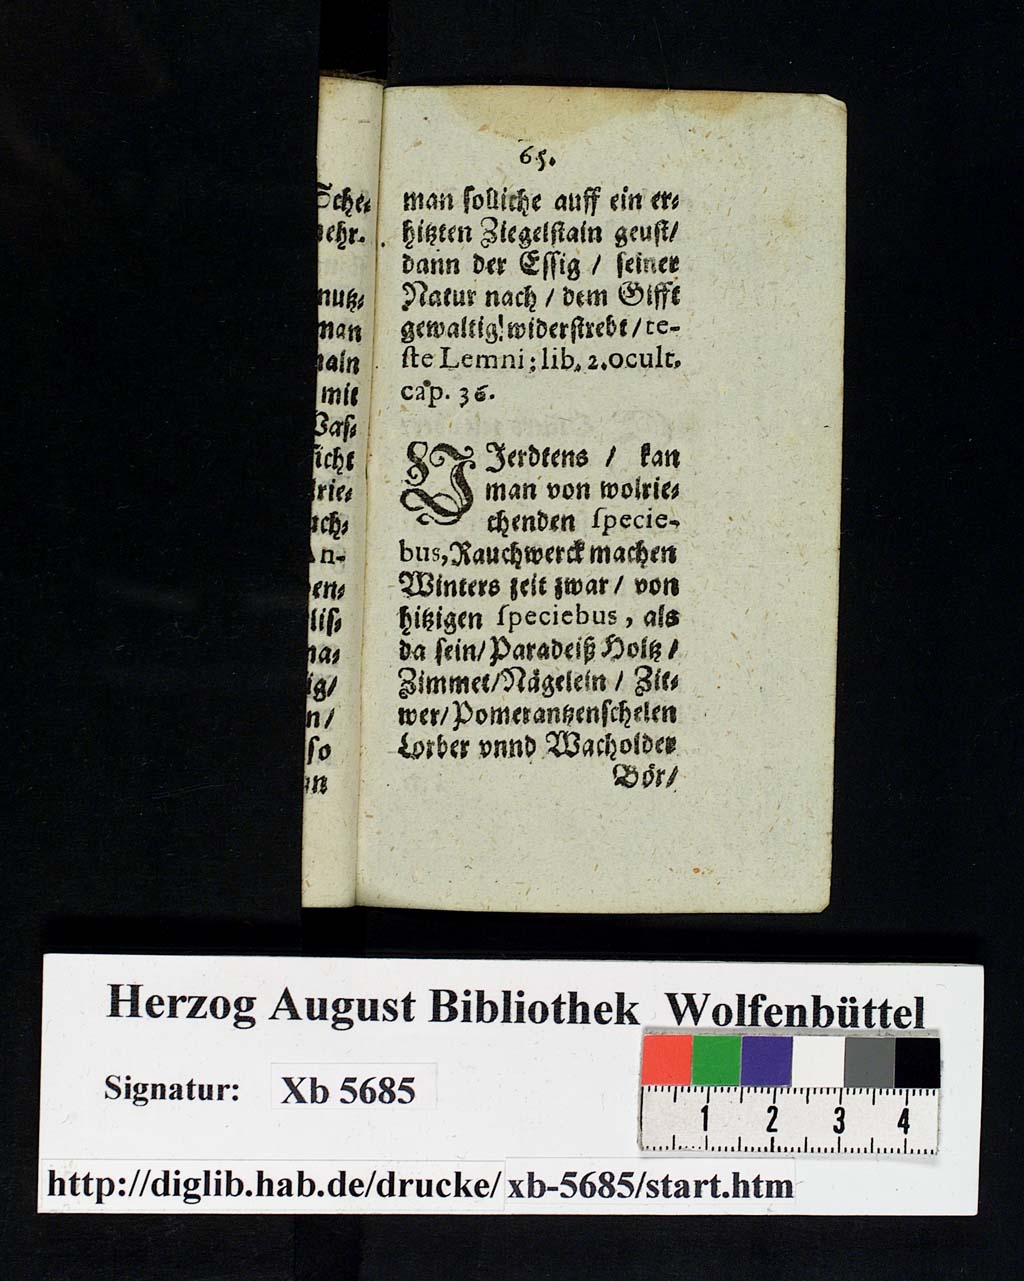 65.
man solliche auff ein er⸗
hitzten Ziegelstain geust/
dann der Essig / seiner
Natur nach / dem Gifft
gewaltig! widerstrebt / te-
ste Lemni; lib. 2. ocult.
cap. 36.
VJerdtens / kan
man von wolrie⸗
chenden specie-
bus, Rauchwerck machen
Winters zeit zwar / von
hitzigen speciebus, als
da sein / Paradeiß Holtz /
Zimmet / Nägelein / Zit⸗
wer / Pomerantzenschelen
Lorber vnnd Wacholder
Bör/
nutz⸗
man
mit
so
Herzog August Bibliothek Wolfenbüttel
Signatur: Xb 5685
1 2 3 4
http://diglib.hab.de/drucke/xb-5685/start.htm